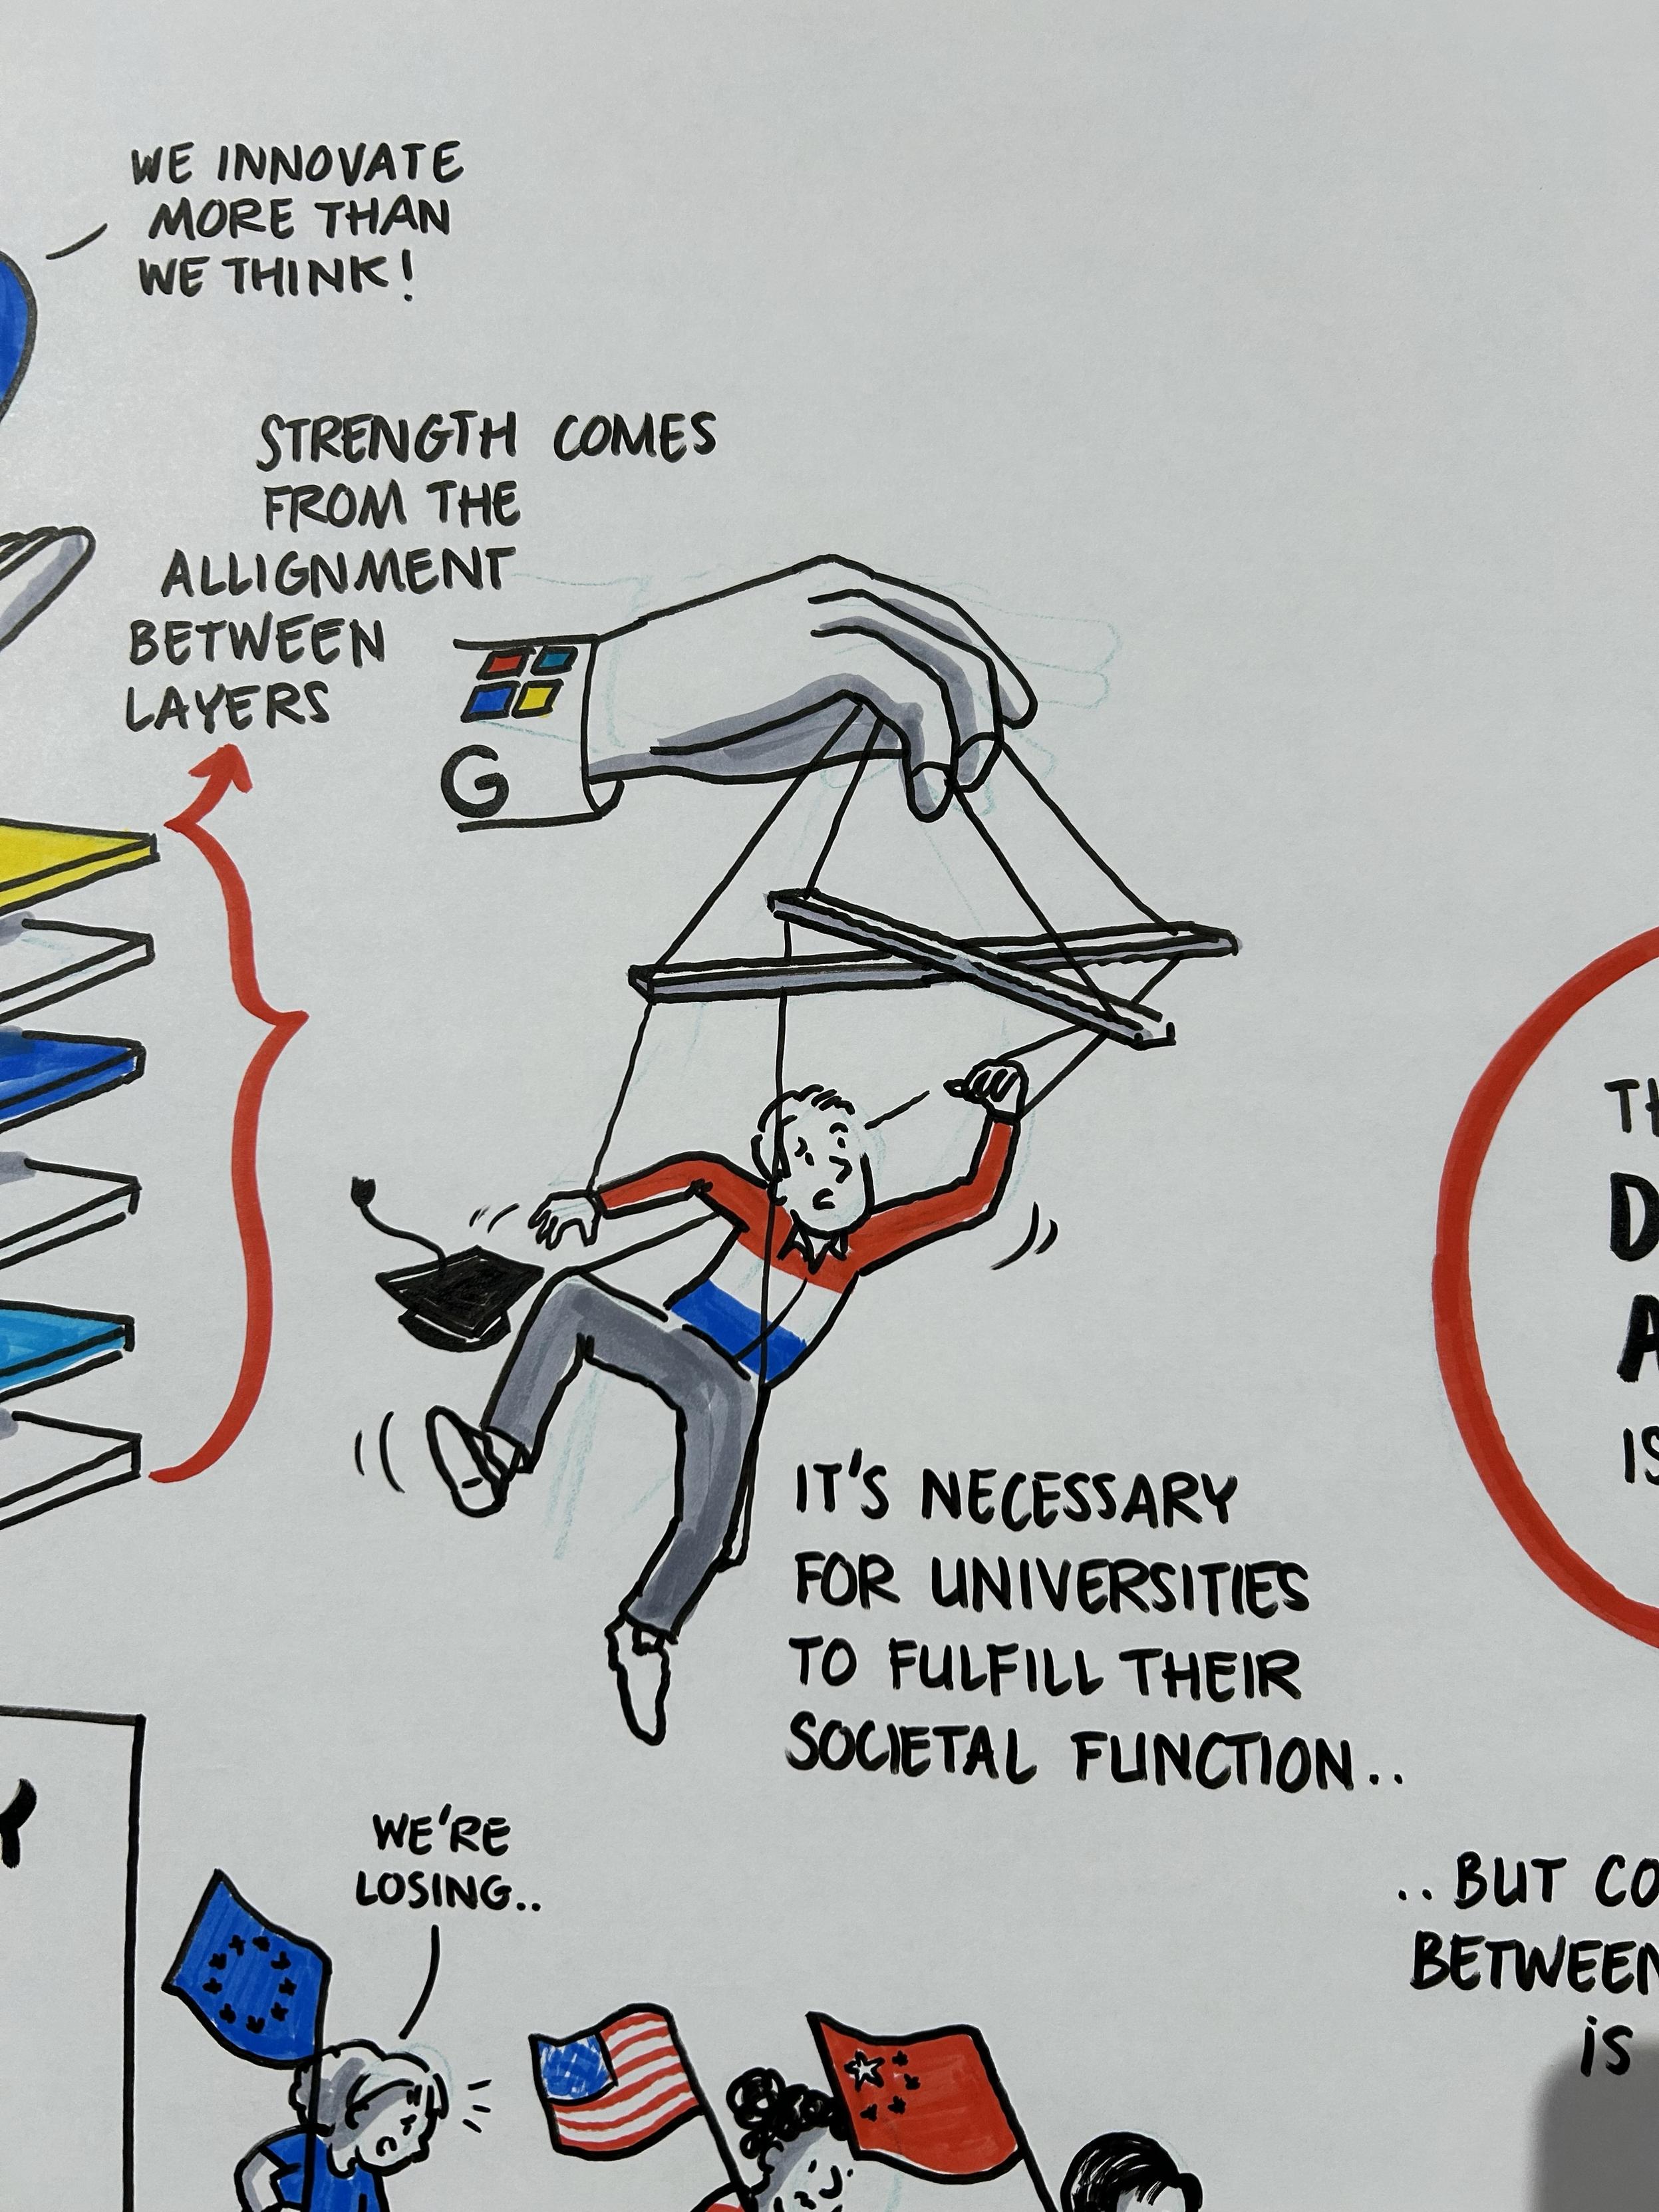 WE INNOVATE
MORE THAN
WE THINK!
STRENGTH COMES
FROM THE
ALLIGNMENT
BETWEEN
LAYERS
G
IT'S NECESSARY
FOR UNIVERSITIES
TO FULFILL THEIR
SOCIETAL FUNCTION..
WE'RE
LOSING..
..BUT
BETWEEN
is